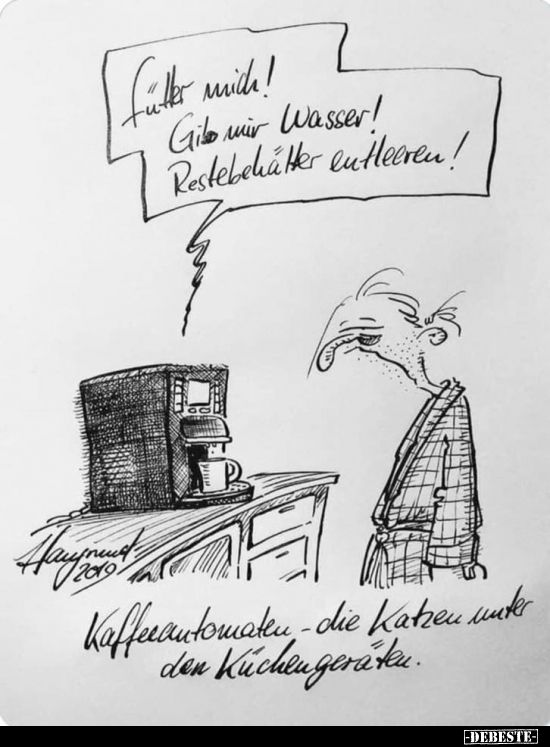 Fütter mich!
Gib mir Wasser!
Restebehälter entleeren!
2019
Kaffeeautomaten - die Katzen unter
den Küchengeräten.
-DEBESTE-